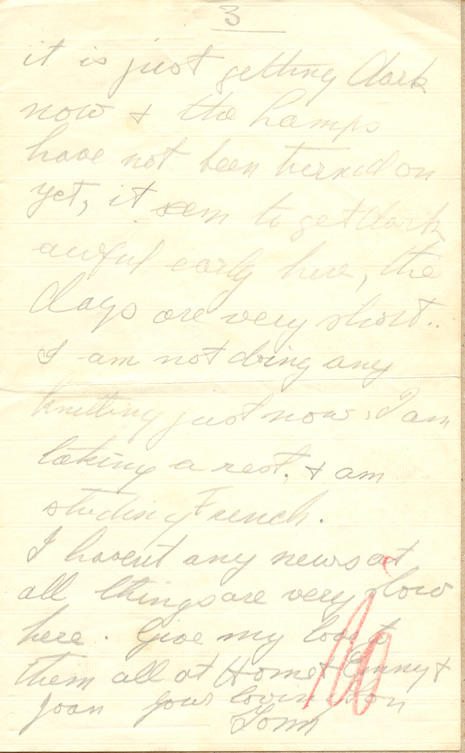 3
it is just getting dark
now + the Lamps
have not been turned on
yet, it sem to get dark
awful early here, the
days are very short..
I am not doing any
knitting just now. I am
taking a rest. + am
studing French.
I havent any news at
all things are very slow
here. Give my love to
them all at Home +
Joan your lovin son
Tom